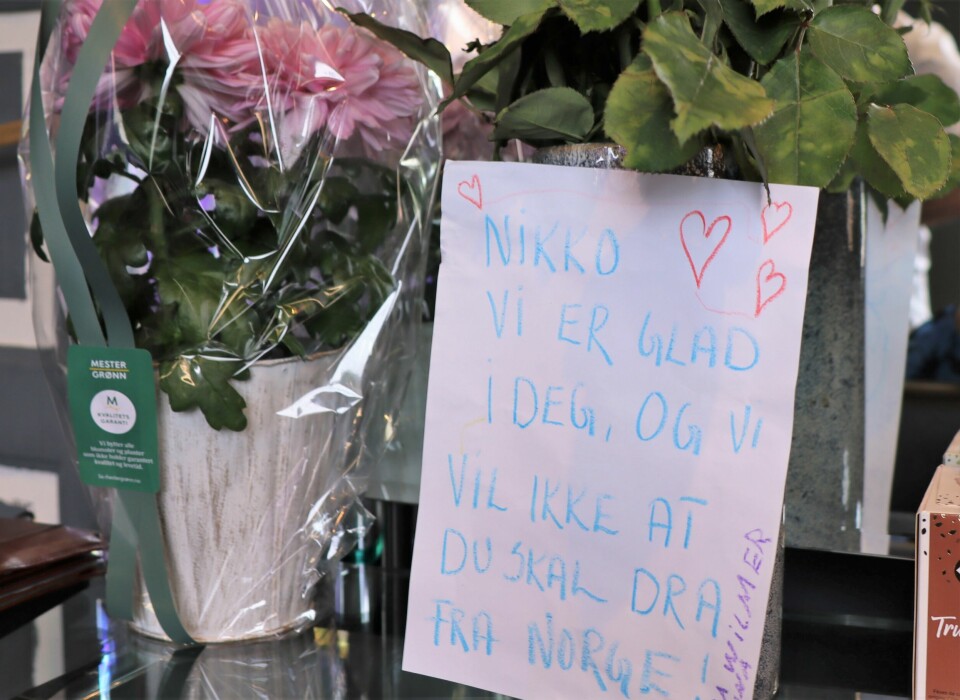 MESTER
GRØNN
M
KVALITETS
GARANTI
Vi bytter alle
blomster og planter
som ikke holder garantert
kvalitet og levetid.
NIKKO
Vi ER GLAD
i DEG, OG Vi
ViL IKKE AT
DU SKAL DRA
FRA NORGE!
WiLMER
Tru